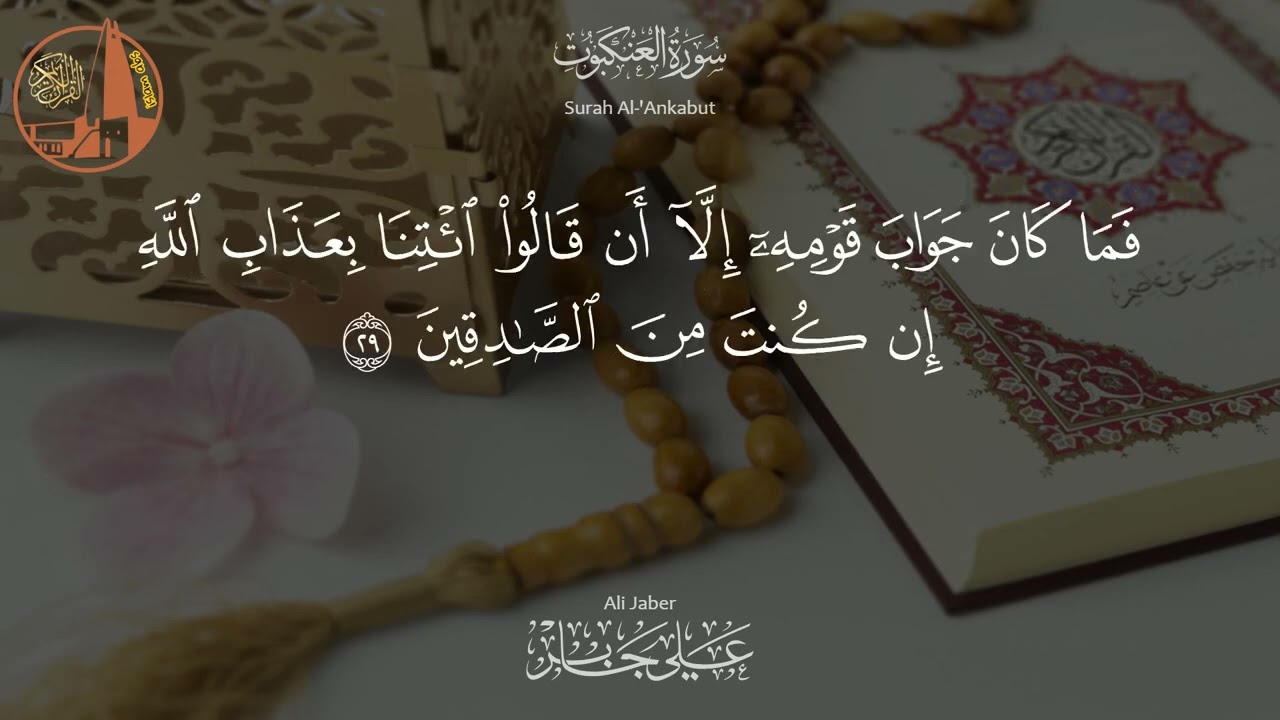 سُورَةُ العَنكَبُوتِ
Surah Al-'Ankabut
القرآن الكريم
فَمَا كَانَ جَوَابَ قَوْمِهِۦٓ إِلَّآ أَن قَالُوا۟ ٱئْتِنَا بِعَذَابِ ٱللَّهِ
إِن كُنتَ مِنَ ٱلصَّـٰدِقِينَ ٢٩
Ali Jaber
عَلي جَابر